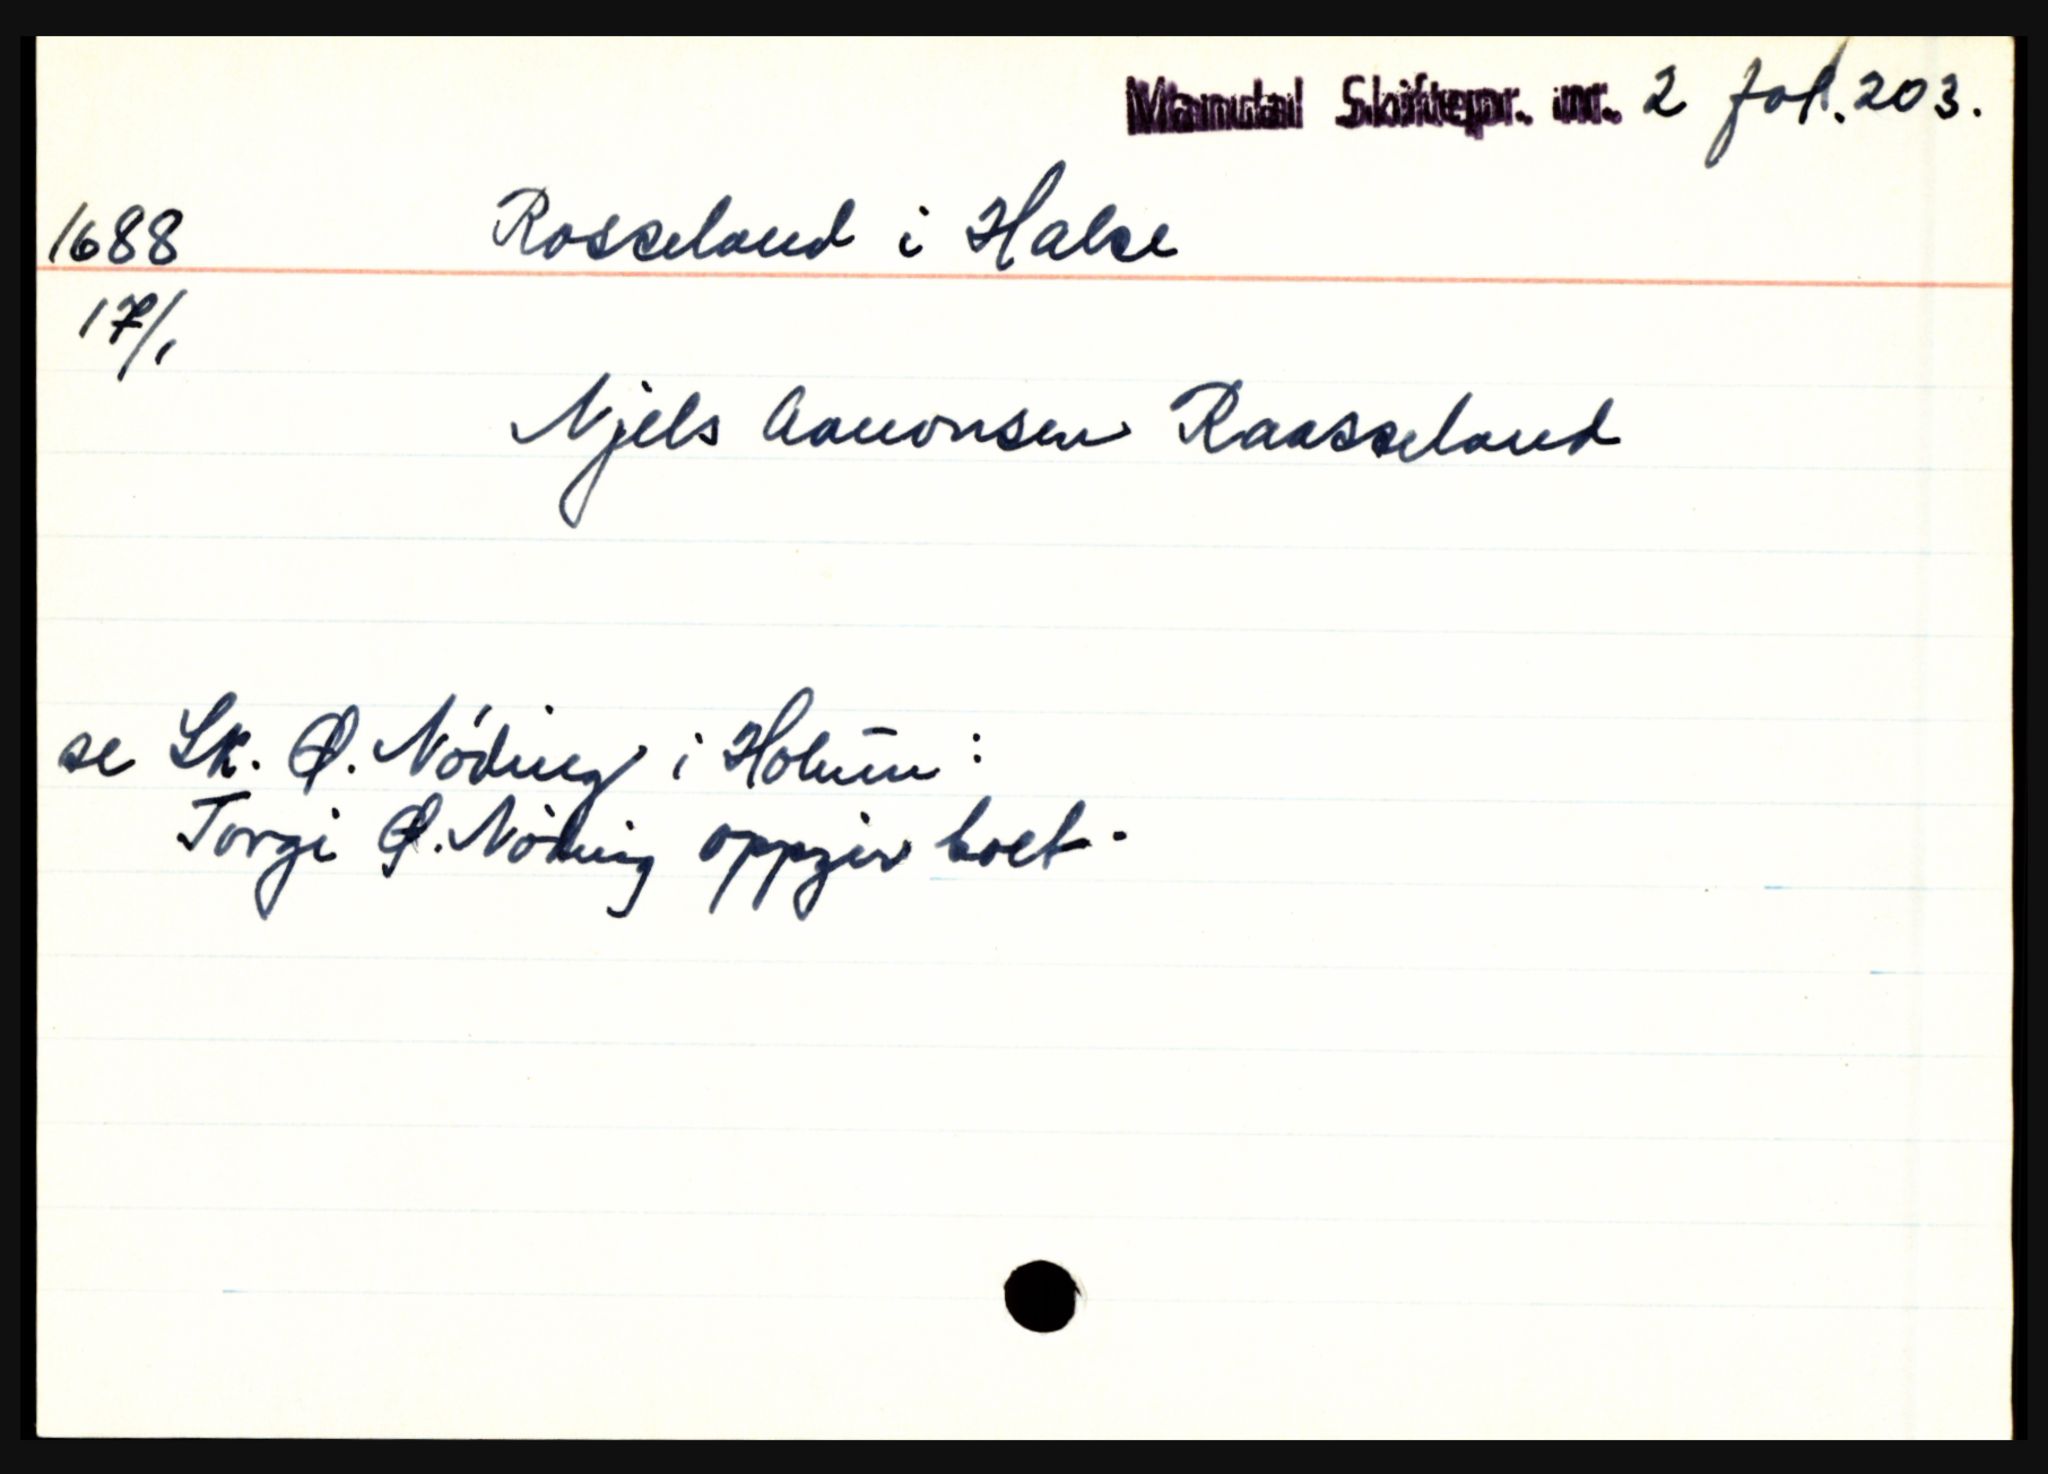 Mandal Skiftepr. nr. 2 fol. 203.
1688 Rosseland i Halse
17/1
Njels Aanonsen Raasseland
se Sk. Ø. Nöding i Holum :
Torgi Ø. Nöding oppgir boet.